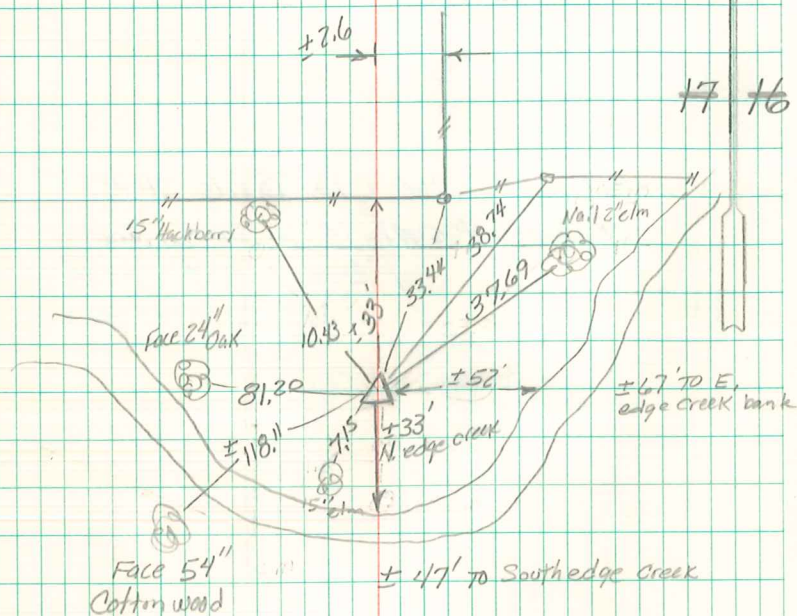 ±2.6
17 16
15" Hackberry
Nail 2" elm
38.74
33.44
37.69
10.43
±33'
Face 24" Oak
81.20
±52'
±67' TO E.
edge creek bank
±118.11
7.15
±33'
N. edge creek
5" elm
Face 54"
Cottonwood
± 47' TO South edge creek